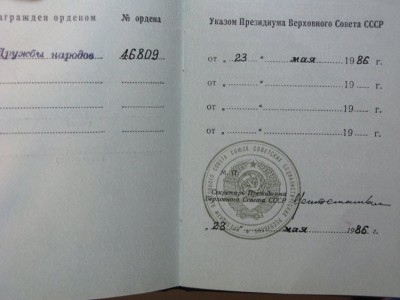 награжден орденом № ордена
Дружбы народов 46809
Указом Президиума Верховного Совета СССР
от „ 23 “ мая 1986 г.
от „ “ 19 г.
от „ “ 19 г.
от „ “ 19 г.
М. П.
Секретарь Президиума
Верховного Совета СССР
„ 23 “ мая 1986 г.